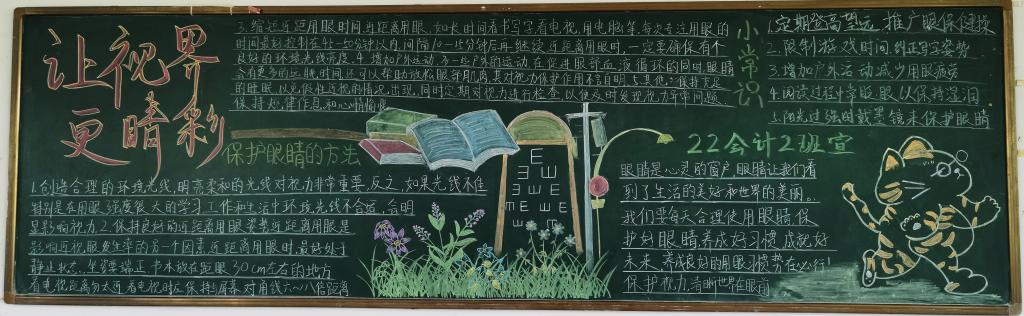 让视界
更睛彩
3.缩短近距用眼时间,近距离用眼,如长时间看书写字看电视,用电脑等,每次专注用眼的
时间最好控制在45-50分钟以内,间隔10-15分钟后再继续近距离用眼时,一定要确保有个
良好的环境光线亮度.4.增加户外运动,多一些户外的运动,在促进眼部血液循环的同时,眼睛
会有更多的远眺,时间还可以帮助放松眼部肌肉,其对视力保护作用不言自明.5.其他:保持充足
的睡眠,以免假性近视的情况出现,同时定期对视力进行检查,以便及时发现视力异常问题
保持规律作息和心情愉悦
保护眼睛的方法
1.创造合理的环境光线,明亮柔和的光线对视力非常重要,反之,如果光线不佳
特别是在用眼强度很大的学习工作和生活中环境光线不合适,会明
显影响视力.2.保持良好的近距离用眼姿势近距离用眼是
影响近视眼发生率的另一个因素,近距离用眼时,最好处于
静止状态,坐姿要端正,书本放在距眼30cm左右的地方
看电视距离勿太近,看电视时应保持与屏幕对角线六~八倍距离
E
E E
小常识
1.定期登高望远,推广眼保健操
2.限制游戏时间,纠正写字姿势
3.增加户外活动减少用眼疲劳
4.阅读过程中常眨眼,以保持湿润
5.阳光过强时戴墨镜来保护眼睛
22会计2班宣
眼睛是心灵的窗户,眼睛让我们看
到了生活的美好和世界的美丽.
我们要每天合理使用眼睛,保
护好眼睛,养成好习惯,成就好
未来,养成良好的用眼习惯势在必行!
保护视力,清晰世界在眼前